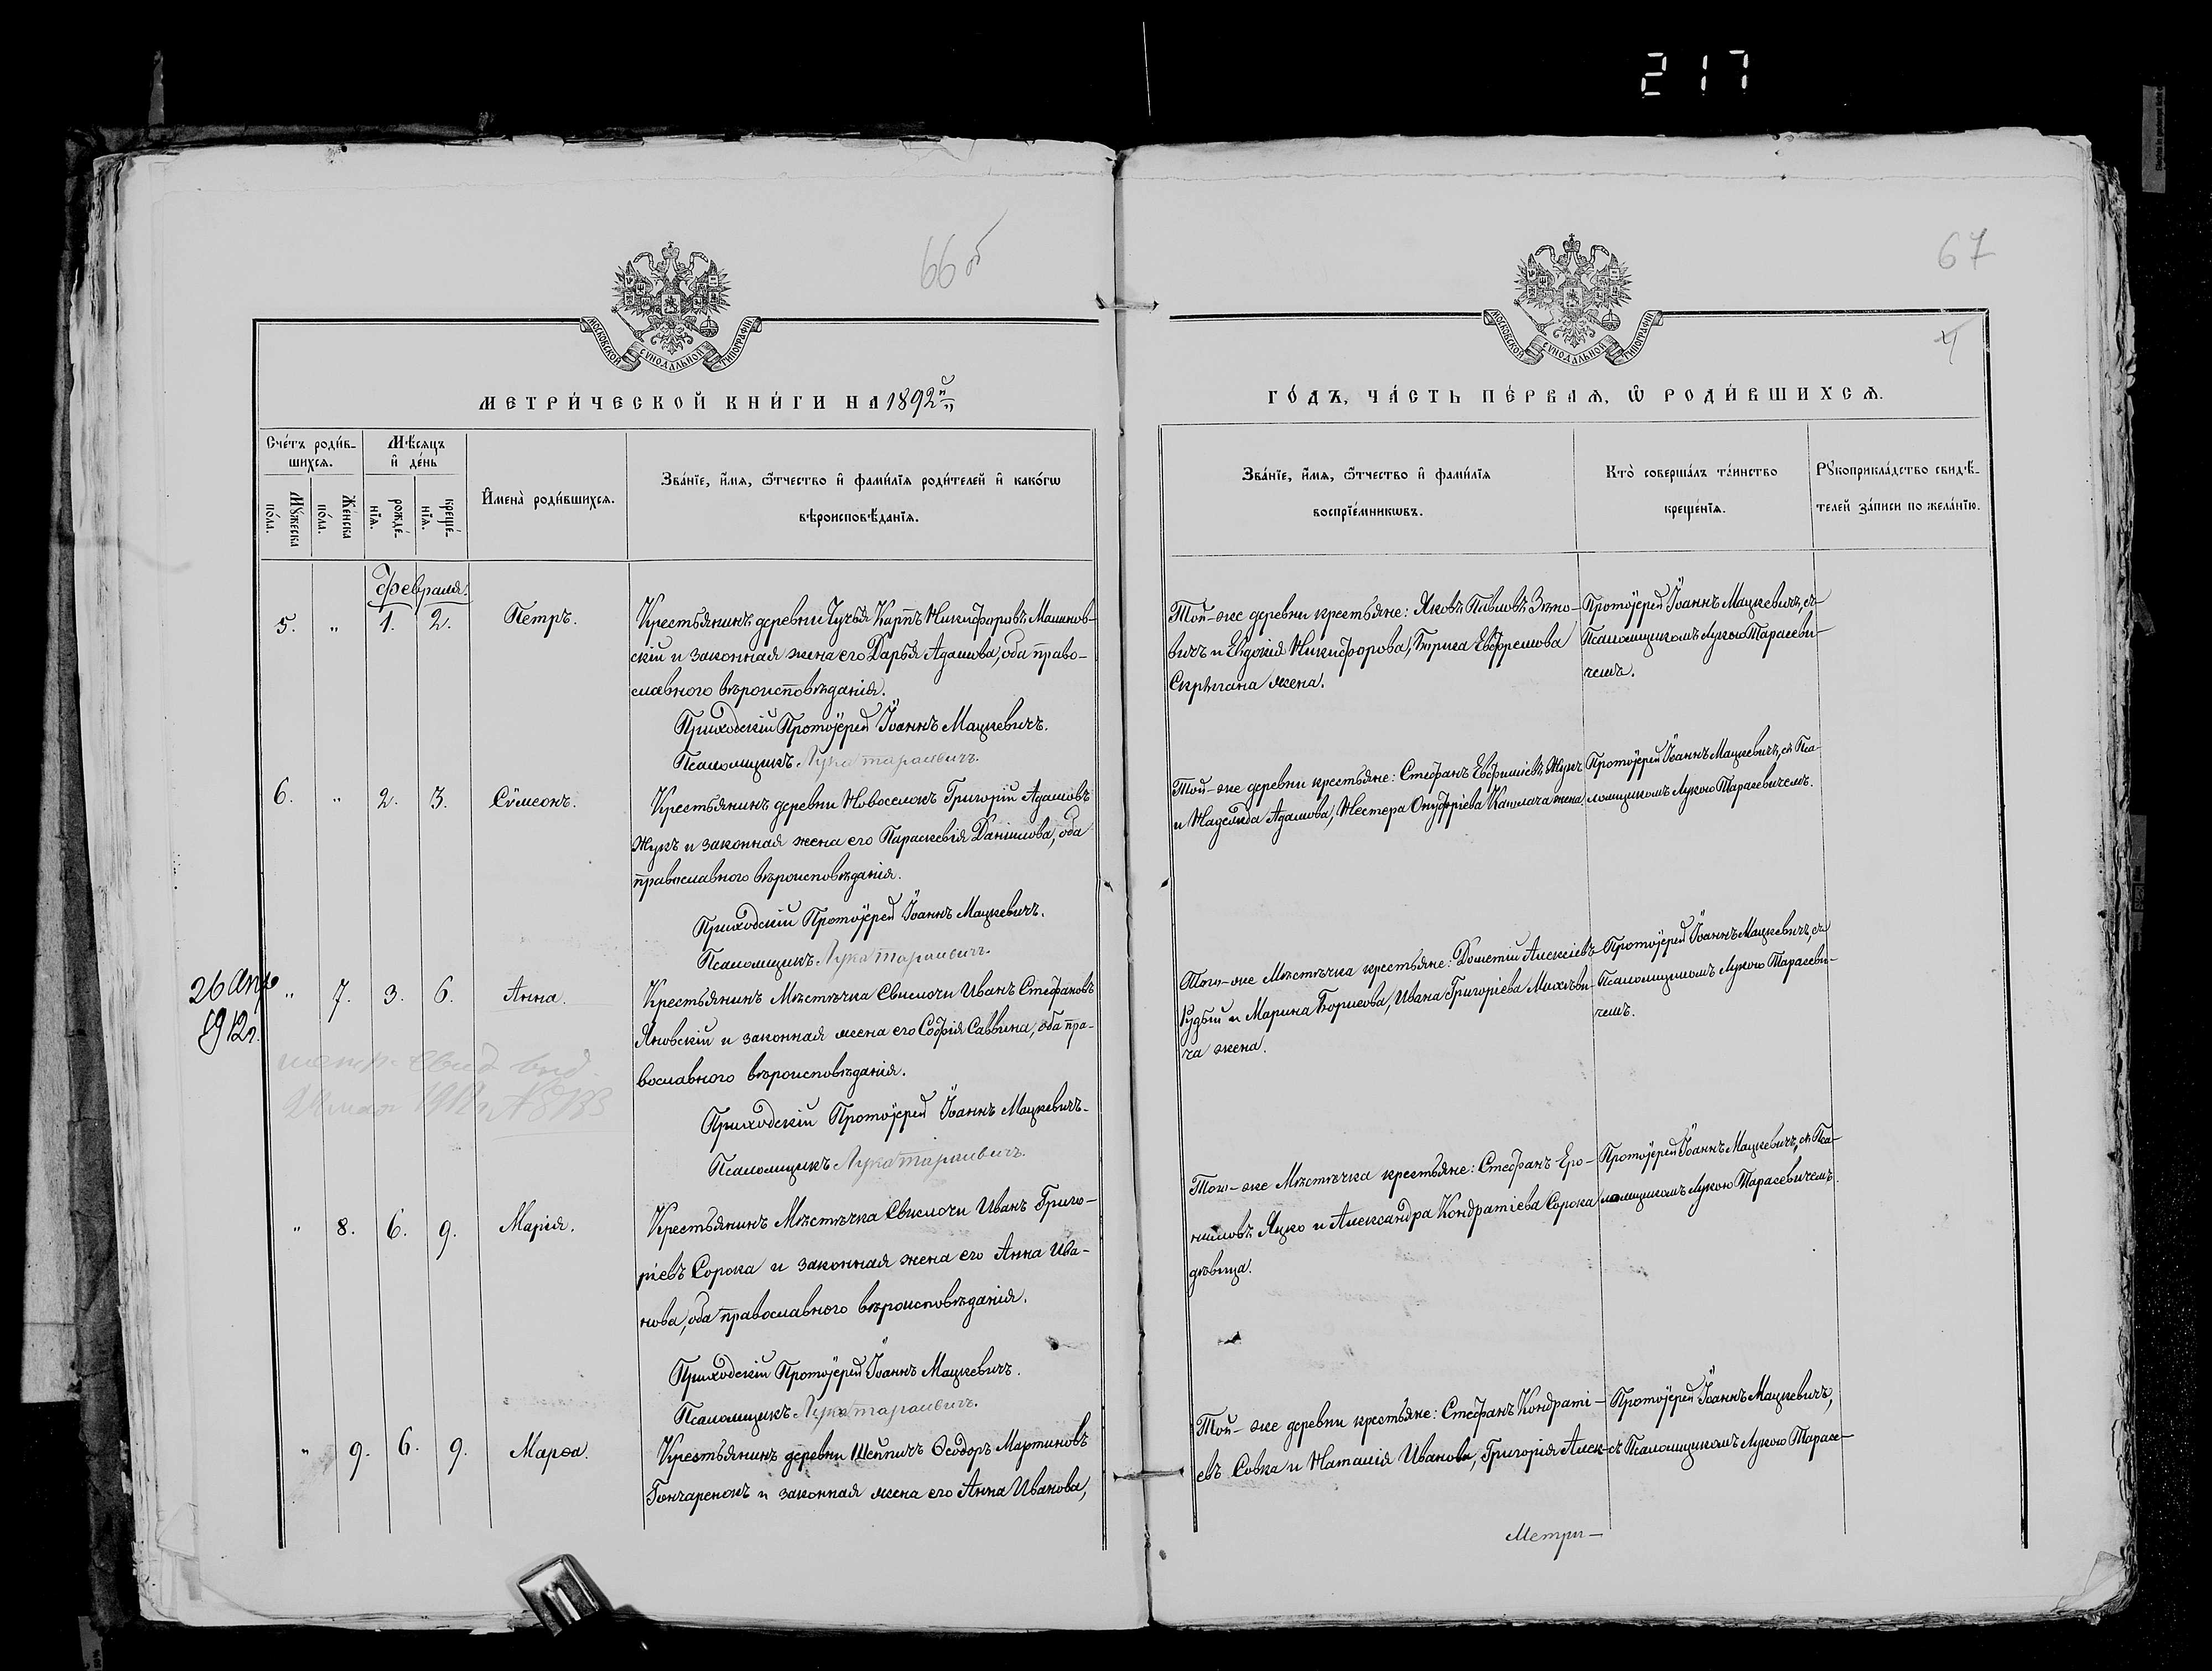 217
66 об
67
МОСКОВСКОЙ СУНОДАЛЬНОЙ ТИПОГРАФІИ
МОСКОВСКОЙ СУНОДАЛЬНОЙ ТИПОГРАФІИ
4
МЕТРИ́ЧЕСКОЙ КНИ́ГИ НА 1892й
ГО́ДЪ, ЧА́СТЬ ПЕ́РВАѦ, Ѿ РОДИ́ВШИХСѦ.
Сче́тъ роди́в-
шихсѧ.
Мꙋ́жеска по́ла.
Же́нска по́ла.
Мѣ́сѧцъ
и҆ де́нь
рожде́-
нїѧ.
креще́-
нїѧ.
И҆мена̀ роди́вшихсѧ.
Зва́нїе, и҆́мѧ, ѻ҆́тчество и҆ фами́лїѧ роди́телей и҆ како́гѡ
вѣроисповѣ́данїѧ.
Зва́нїе, и҆́мѧ, ѻ҆́тчество и҆ фами́лїѧ
воспрїе́мникѡвъ.
Кто̀ соверша́лъ та́инство
креще́нїѧ.
Рꙋкоприкла́дство свидѣ́-
телей за́писи по жела́нїю.
Февраля.
5. " 1. 2. Петръ.
Крестьянинъ деревни Чучья Карпъ Никифоровъ Малинов-
скій и законная жена его Дарья Адамова, оба право-
славного вѣроисповѣданія.
Приходскій Протоіерей Іоаннъ Мацкевичъ.
Псаломщикъ Лука Тарасевичъ.
Той-же деревни крестьяне: Яковъ Павловъ
вичъ и Евдокія Никифорова, Бориса Евфремова
Скрыгана жена.
Протоіерей Іоаннъ Мацкевичъ, съ
Псаломщикомъ Лукою Тарасеви-
чемъ.
6. " 2. 3. Сѵмеонъ.
Крестьянинъ деревни Новоселокъ Григорій Адамовъ
Жукъ и законная жена его Параскевія Даніилова, оба
православного вѣроисповѣданія.
Приходскій Протоіерей Іоаннъ Мацкевичъ.
Псаломщикъ Лука Тарасевичъ.
Той-же деревни крестьяне: Стефанъ Евфиміевъ Жукъ
и Надежда Адамова, Нестера Онуфріева жена
Протоіерей Іоаннъ Мацкевичъ, съ Пса-
ломщикомъ Лукою Тарасевичемъ.
26 Апр
1912г.
" 7. 3. 6. Анна.
метр. свид. выд.
1912г. №
Крестьянинъ Мѣстечка Свислочи Иванъ Стефановъ
Яновскій и законная жена его Софія Саввина, оба пра-
вославного вѣроисповѣданія.
Приходскій Протоіерей Іоаннъ Мацкевичъ.
Псаломщикъ Лука Тарасевичъ.
Того-же Мѣстечка крестьяне: Дометій Алексіевъ
Рудый и Марина Борисова, Ивана Григоріева Михеви-
ча жена.
Протоіерей Іоаннъ Мацкевичъ, съ
Псаломщикомъ Лукою Тарасеви-
чемъ.
" 8. 6. 9. Марія.
Крестьянинъ Мѣстечка Свислочи Иванъ Григо-
ріевъ Сорока и законная жена его Анна Ива-
нова, оба православного вѣроисповѣданія.
Приходскій Протоіерей Іоаннъ Мацкевичъ.
Псаломщикъ Лука Тарасевичъ.
Того-же Мѣстечка крестьяне: Стефанъ Еро-
нимовъ Яцко и Александра Кондратіева Сорока
дѣвица.
Протоіерей Іоаннъ Мацкевичъ, съ Пса-
ломщикомъ Лукою Тарасевичемъ.
" 9. 6. 9. Марѳа.
Крестьянинъ деревни Шейпичъ Ѳеодоръ Мартиновъ
Гончаренокъ и законная жена его Анна Иванова,
Той-же деревни крестьяне: Стефанъ Кондраті-
евъ Совка и Наталія Иванова, Григорія Алек-
Протоіерей Іоаннъ Мацкевичъ,
съ Псаломщикомъ Лукою Тарасе-
Метри-